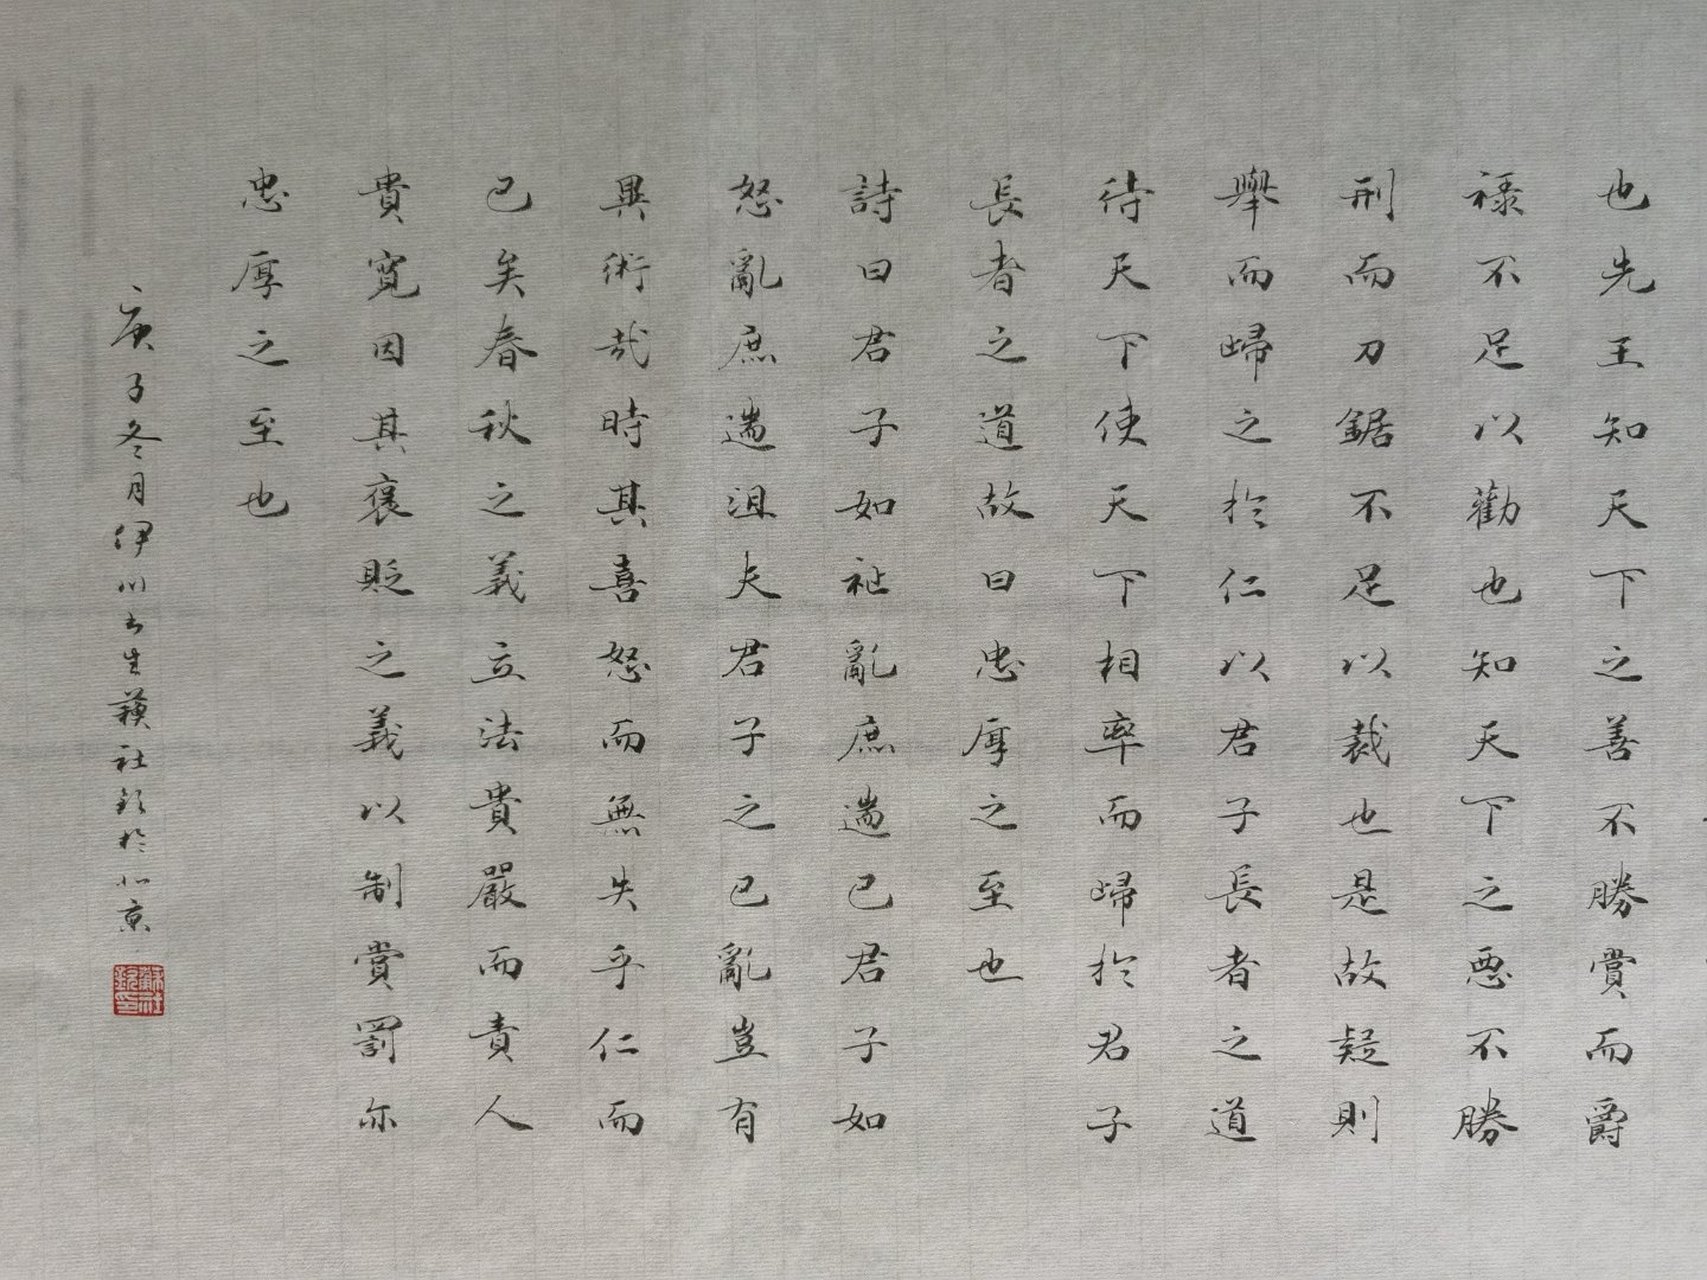 也先王知天下之善不勝賞而爵
禄不足以勸也知天下之悪不勝
刑而刀鋸不足以裁也是故疑則
舉而歸之於仁以君子長者之道
待天下使天下相率而歸於君子
長者之道故曰忠厚之至也
詩曰君子如祉亂庶遄已君子如
怒亂庶遄沮夫君子之已亂豈有
異術哉時其喜怒而無失乎仁而
已矣春秋之義立法貴嚴而責人
貴寬因其褒貶之義以制賞罰亦
忠厚之至也
庚子冬月伊川书生蘇社於北京